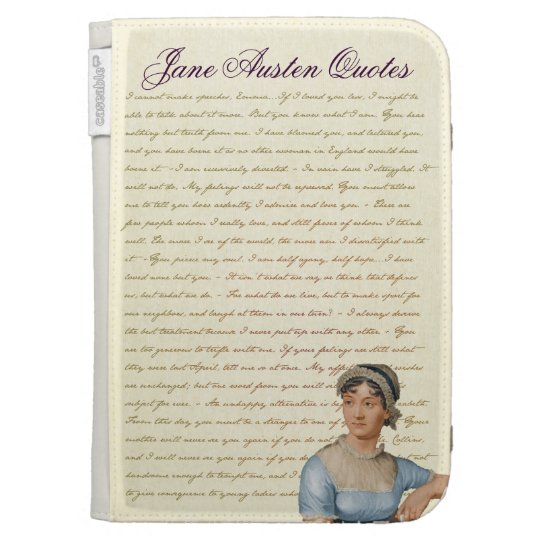 caseable
Jane Austen Quotes
I cannot make speeches, Emma...If I loved you less, I might be
able to talk about it more. But you know what I am. You hear
nothing but truth from me. I have blamed you, and lectured you,
and you have borne it as no other woman in England would have
borne it. - I am excessively diverted. - In vain have I struggled. It
will not do. My feelings will not be repressed. You must allow
me to tell you how ardently I admire and love you. - There are
few people whom I really love, and still fewer of whom I think
well. The more I see of the world, the more am I dissatisfied with
it - You pierce my soul. I am half agony, half hope...I have
loved none but you. - It isn't what we say or think that defines
us, but what we do. - For what do we live, but to make sport for
our neighbors, and laugh at them in our turn? - I always deserve
the best treatment because I never put up with any other. - You
are too generous to trifle with me. If your feelings are still what
they were last April, tell me so at once. My wishes
are unchanged; but one word from you will
subject for ever. - An unhappy alternative is
From this day you must be a stranger to one of Your
mother will never see you again if you do not Collins,
and I will never see you again if you do not
handsome enough to tempt me, and I
to give consequence to young ladies who